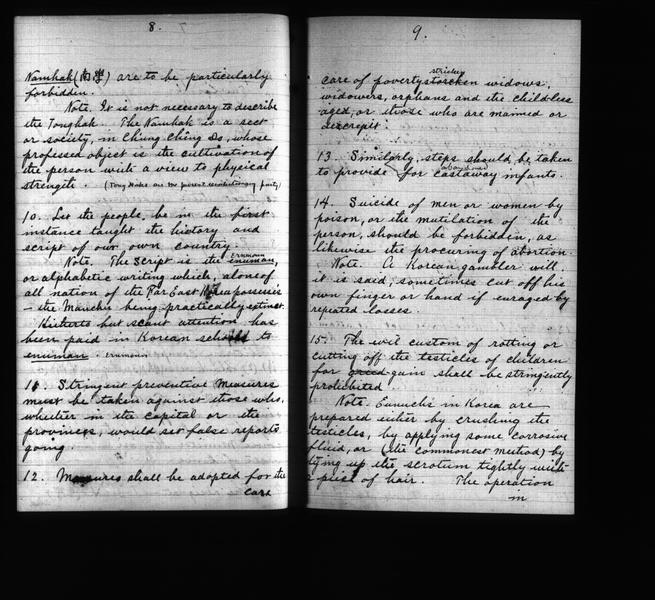 8.
Namhak (南學) are to be particularly
forbidden.
Note. It is not necessary to describe
the Tonghak. The Namhak is a sect
or society, in Chung Ching Do, whose
professed object is the cultivation of
the person with a view to physical
strength. (Tong Haks are the present revolutionary party)
10. Let the people, be in the first
instance taught the history and
script of our own country.
Note. The Script is the enmun, Ernmoun
or alphabetic writing which, alone of
all nation of the Far East Korea possesses
– the Manchu being practically extinct.
Hitherto but scant attention has
been paid in Korean schools to
enmun. Ernmoun
11. Stringent preventive measures
must be taken against those who,
whether in the capital or the
provinces, would set false reports
going.
12. Measures shall be adopted for the
care
9.
care of poverty stricken widows,
widowers, orphans and the childless
aged, or those who are maimed or
decrepit.
13. Similarly, steps should be taken
to provide for castaway infants.
14. Suicide of men or women by
poison, or the mutilation of the
person, should be forbidden, as
likewise the procuring of abortion.
Note. A Korean gambler will,
it is said, sometimes cut off his
own finger or hand if enraged by
repeated losses.
15. The evil custom of rotting or
cutting off the testicles of children
for gain shall be stringently
prohibited.
Note. Eunuchs in Korea are
prepared either by crushing the
testicles, by applying some corrosive
fluid, or (the commonest method) by
tying up the scrotum tightly with
a piece of hair. The operation
in